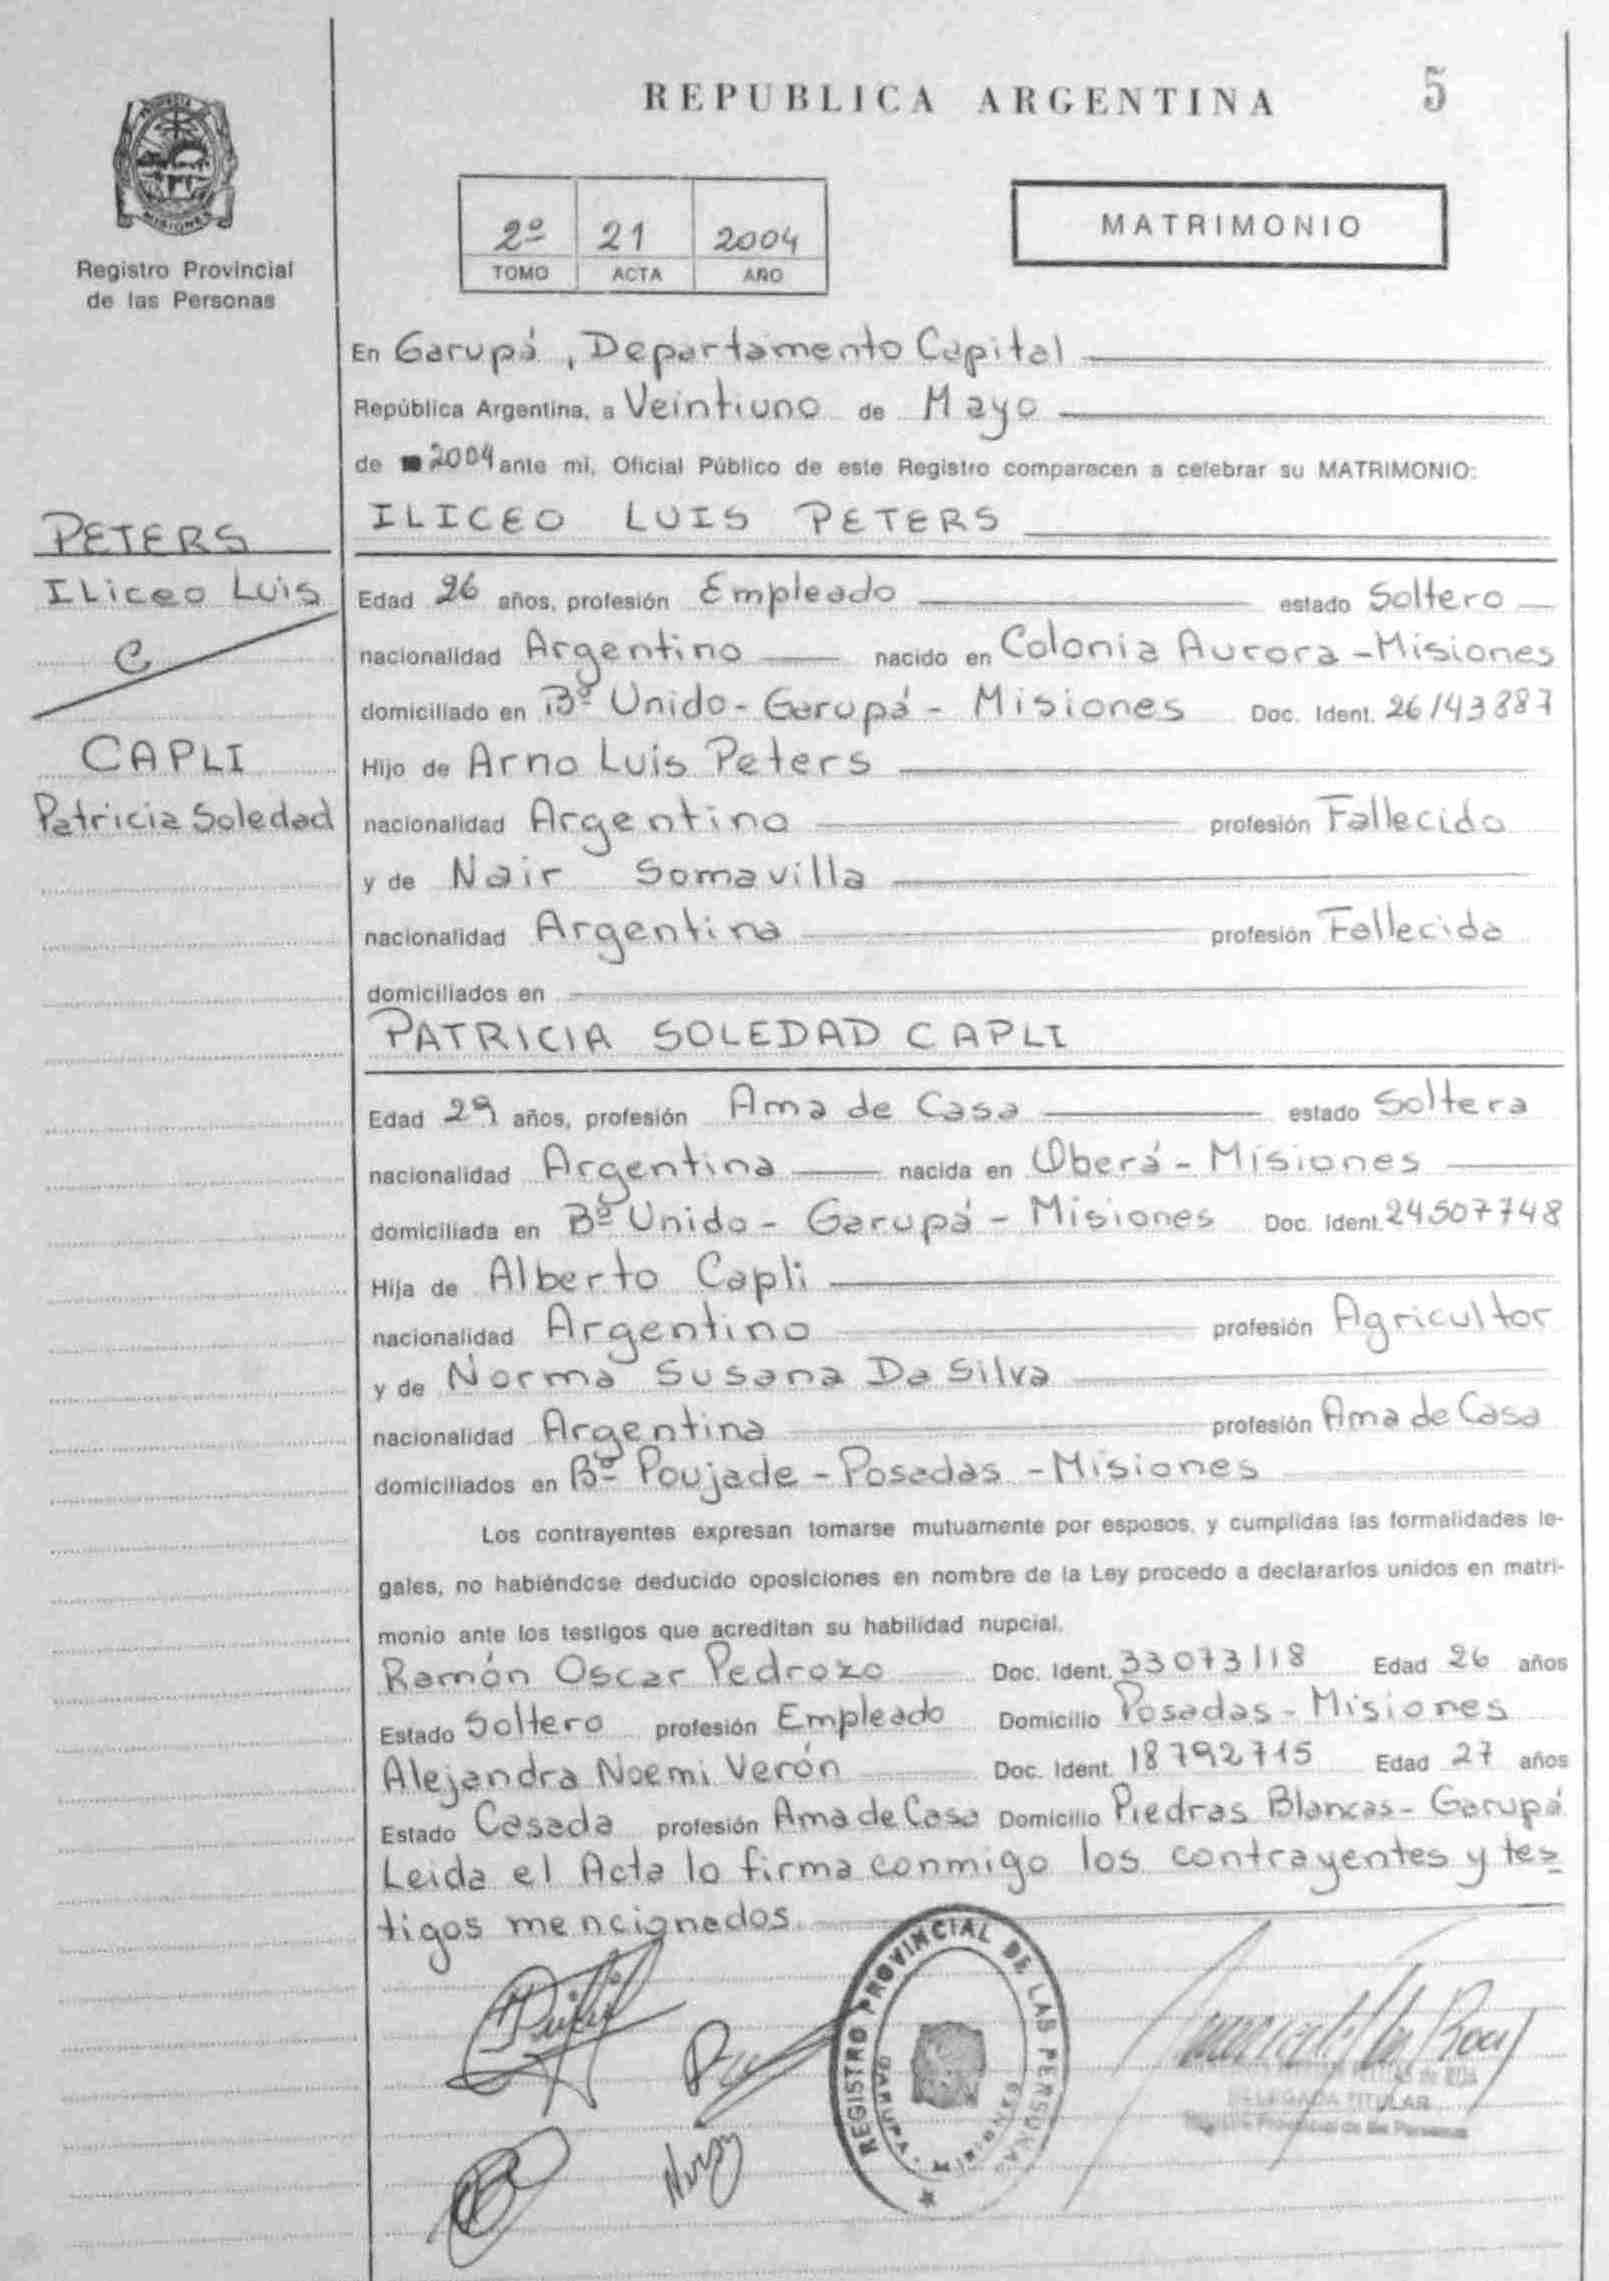 REPUBLICA ARGENTINA 5
MISIONES
Registro Provincial
de las Personas
2º 21 2004
TOMO ACTA AÑO
MATRIMONIO
En Garupá, Departamento Capital
República Argentina, a Veintiuno de Mayo
de 2004 ante mi, Oficial Público de este Registro comparecen a celebrar su MATRIMONIO:
PETERS
Iliceo Luis
C
CAPLI
Patricia Soledad
ILICEO LUIS PETERS
Edad 26 años, profesión Empleado estado Soltero
nacionalidad Argentino nacido en Colonia Aurora - Misiones
domiciliado en Bº Unido - Garupá - Misiones Doc. Ident. 26143887
Hijo de Arno Luis Peters
nacionalidad Argentino profesión Fallecido
y de Nair Somavilla
nacionalidad Argentina profesión Fallecida
domiciliados en
PATRICIA SOLEDAD CAPLI
Edad 29 años, profesión Ama de Casa estado Soltera
nacionalidad Argentina nacida en Oberá - Misiones
domiciliada en Bº Unido - Garupá - Misiones Doc. Ident. 24507748
Hija de Alberto Capli
nacionalidad Argentino profesión Agricultor
y de Norma Susana Da Silva
nacionalidad Argentina profesión Ama de Casa
domiciliados en Bº Poujade - Posadas - Misiones
Los contrayentes expresan tomarse mutuamente por esposos, y cumplidas las formalidades le-
gales, no habiéndose deducido oposiciones en nombre de la Ley procedo a declararlos unidos en matri-
monio ante los testigos que acreditan su habilidad nupcial.
Ramón Oscar Pedrozo Doc. Ident. 33073118 Edad 26 años
Estado Soltero profesión Empleado Domicilio Posadas - Misiones
Alejandra Noemi Verón Doc. Ident. 18792715 Edad 27 años
Estado Casada profesión Ama de Casa Domicilio Piedras Blancas - Garupá
Leida el Acta lo firma conmigo los contrayentes y tes
tigos mencionados.
REGISTRO PROVINCIAL DE LAS PERSONAS
GARUPA - MISIONES
de ROA
DELEGADA TITULAR
Registro Provincial de las Personas